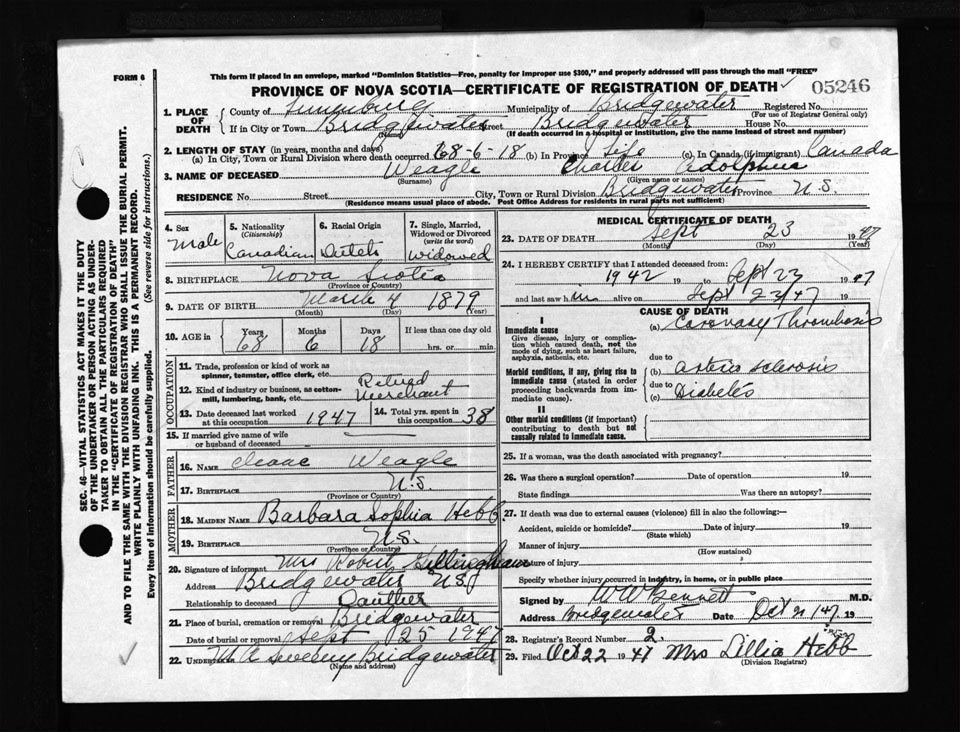 FORM 6
This form if placed in an envelope, marked "Dominion Statistics—Free, penalty for improper use $300," and properly addressed will pass through the mail "FREE"
PROVINCE OF NOVA SCOTIA—CERTIFICATE OF REGISTRATION OF DEATH ✓ 05246
1. PLACE OF DEATH County of Lunenburg Municipality of Bridgewater Registered No.
(For use of Registrar General only)
If in City or Town Bridgewater Street Bridgewater House No.
(Name) (If death occurred in a hospital or institution, give the name instead of street and number)
2. LENGTH OF STAY (in years, months and days)
(a) In City, Town or Rural Division where death occurred 68-6-18 (b) In Province Life (c) In Canada (if immigrant) Canada
3. NAME OF DECEASED Weagle Charles Adolphus
(Surname) (Given name or names)
RESIDENCE No. Street City, Town or Rural Division Bridgewater Province N.S.
(Residence means usual place of abode. Post Office Address for residents in rural parts not sufficient)
4. Sex Male
5. Nationality (Citizenship) Canadian
6. Racial Origin
7. Single, Married, Widowed or Divorced (write the word) Widowed
8. BIRTHPLACE Nova Scotia
(Province or Country)
9. DATE OF BIRTH March 4 1879
(Month) (Day) (Year)
10. AGE in Years 68 Months 6 Days 18 If less than one day old
hrs. or min.
OCCUPATION
11. Trade, profession or kind of work as spinner, teamster, office clerk, etc. Retired
12. Kind of industry or business, as cotton-mill, lumbering, bank, etc. Merchant
13. Date deceased last worked at this occupation 1947
14. Total yrs. spent in this occupation 38
15. If married give name of wife or husband of deceased
FATHER
16. NAME Weagle
17. BIRTHPLACE N.S.
(Province or Country)
MOTHER
18. MAIDEN NAME Barbara Sophia Hebb
19. BIRTHPLACE N.S.
(Province or Country)
20. Signature of informant Mrs Robert Gillingham
Address Bridgewater N.S.
Relationship to deceased Daughter
21. Place of burial, cremation or removal Bridgewater
Date of burial or removal Sept 25 1947
22. UNDERTAKER Bridgewater
(Name and address)
MEDICAL CERTIFICATE OF DEATH
23. DATE OF DEATH Sept 23 1947
(Month) (Day) (Year)
24. I HEREBY CERTIFY that I attended deceased from:
1942 to Sept 23 1947
and last saw him alive on Sept 23/47 19
CAUSE OF DEATH
I
Immediate cause
Give disease, injury or complication which caused death, not the mode of dying, such as heart failure, asphyxia, asthenia, etc.
(a) Coronary Thrombosis
due to
Morbid conditions, if any, giving rise to immediate cause (stated in order proceeding backwards from immediate cause).
(b) Arterio sclerosis
due to
(c) Diabetes
II
Other morbid conditions (if important) contributing to death but not causally related to immediate cause.
25. If a woman, was the death associated with pregnancy?
26. Was there a surgical operation? Date of operation 19
State findings Was there an autopsy?
27. If death was due to external causes (violence) fill in also the following:—
Accident, suicide or homicide? Date of injury 19
(State which)
Manner of injury
(How sustained)
Nature of injury
Specify whether injury occurred in industry, in home, or in public place
Signed by W W Bennett M.D.
Bridgewater Date Oct 21/47 19
28. Registrar's Record Number 2.
29. Filed Oct 22 1947 Mrs Lillia Hebb
(Division Registrar)
SEC. 46—VITAL STATISTICS ACT MAKES IT THE DUTY
OF THE UNDERTAKER OR PERSON ACTING AS UNDERTAKER TO OBTAIN ALL THE PARTICULARS REQUIRED
IN THE "CERTIFICATE OF REGISTRATION OF DEATH"
AND TO FILE THE SAME WITH THE DIVISION REGISTRAR WHO SHALL ISSUE THE BURIAL PERMIT.
WRITE PLAINLY WITH UNFADING INK. THIS IS A PERMANENT RECORD.
Every item of information should be carefully supplied. (See reverse side for instructions.)